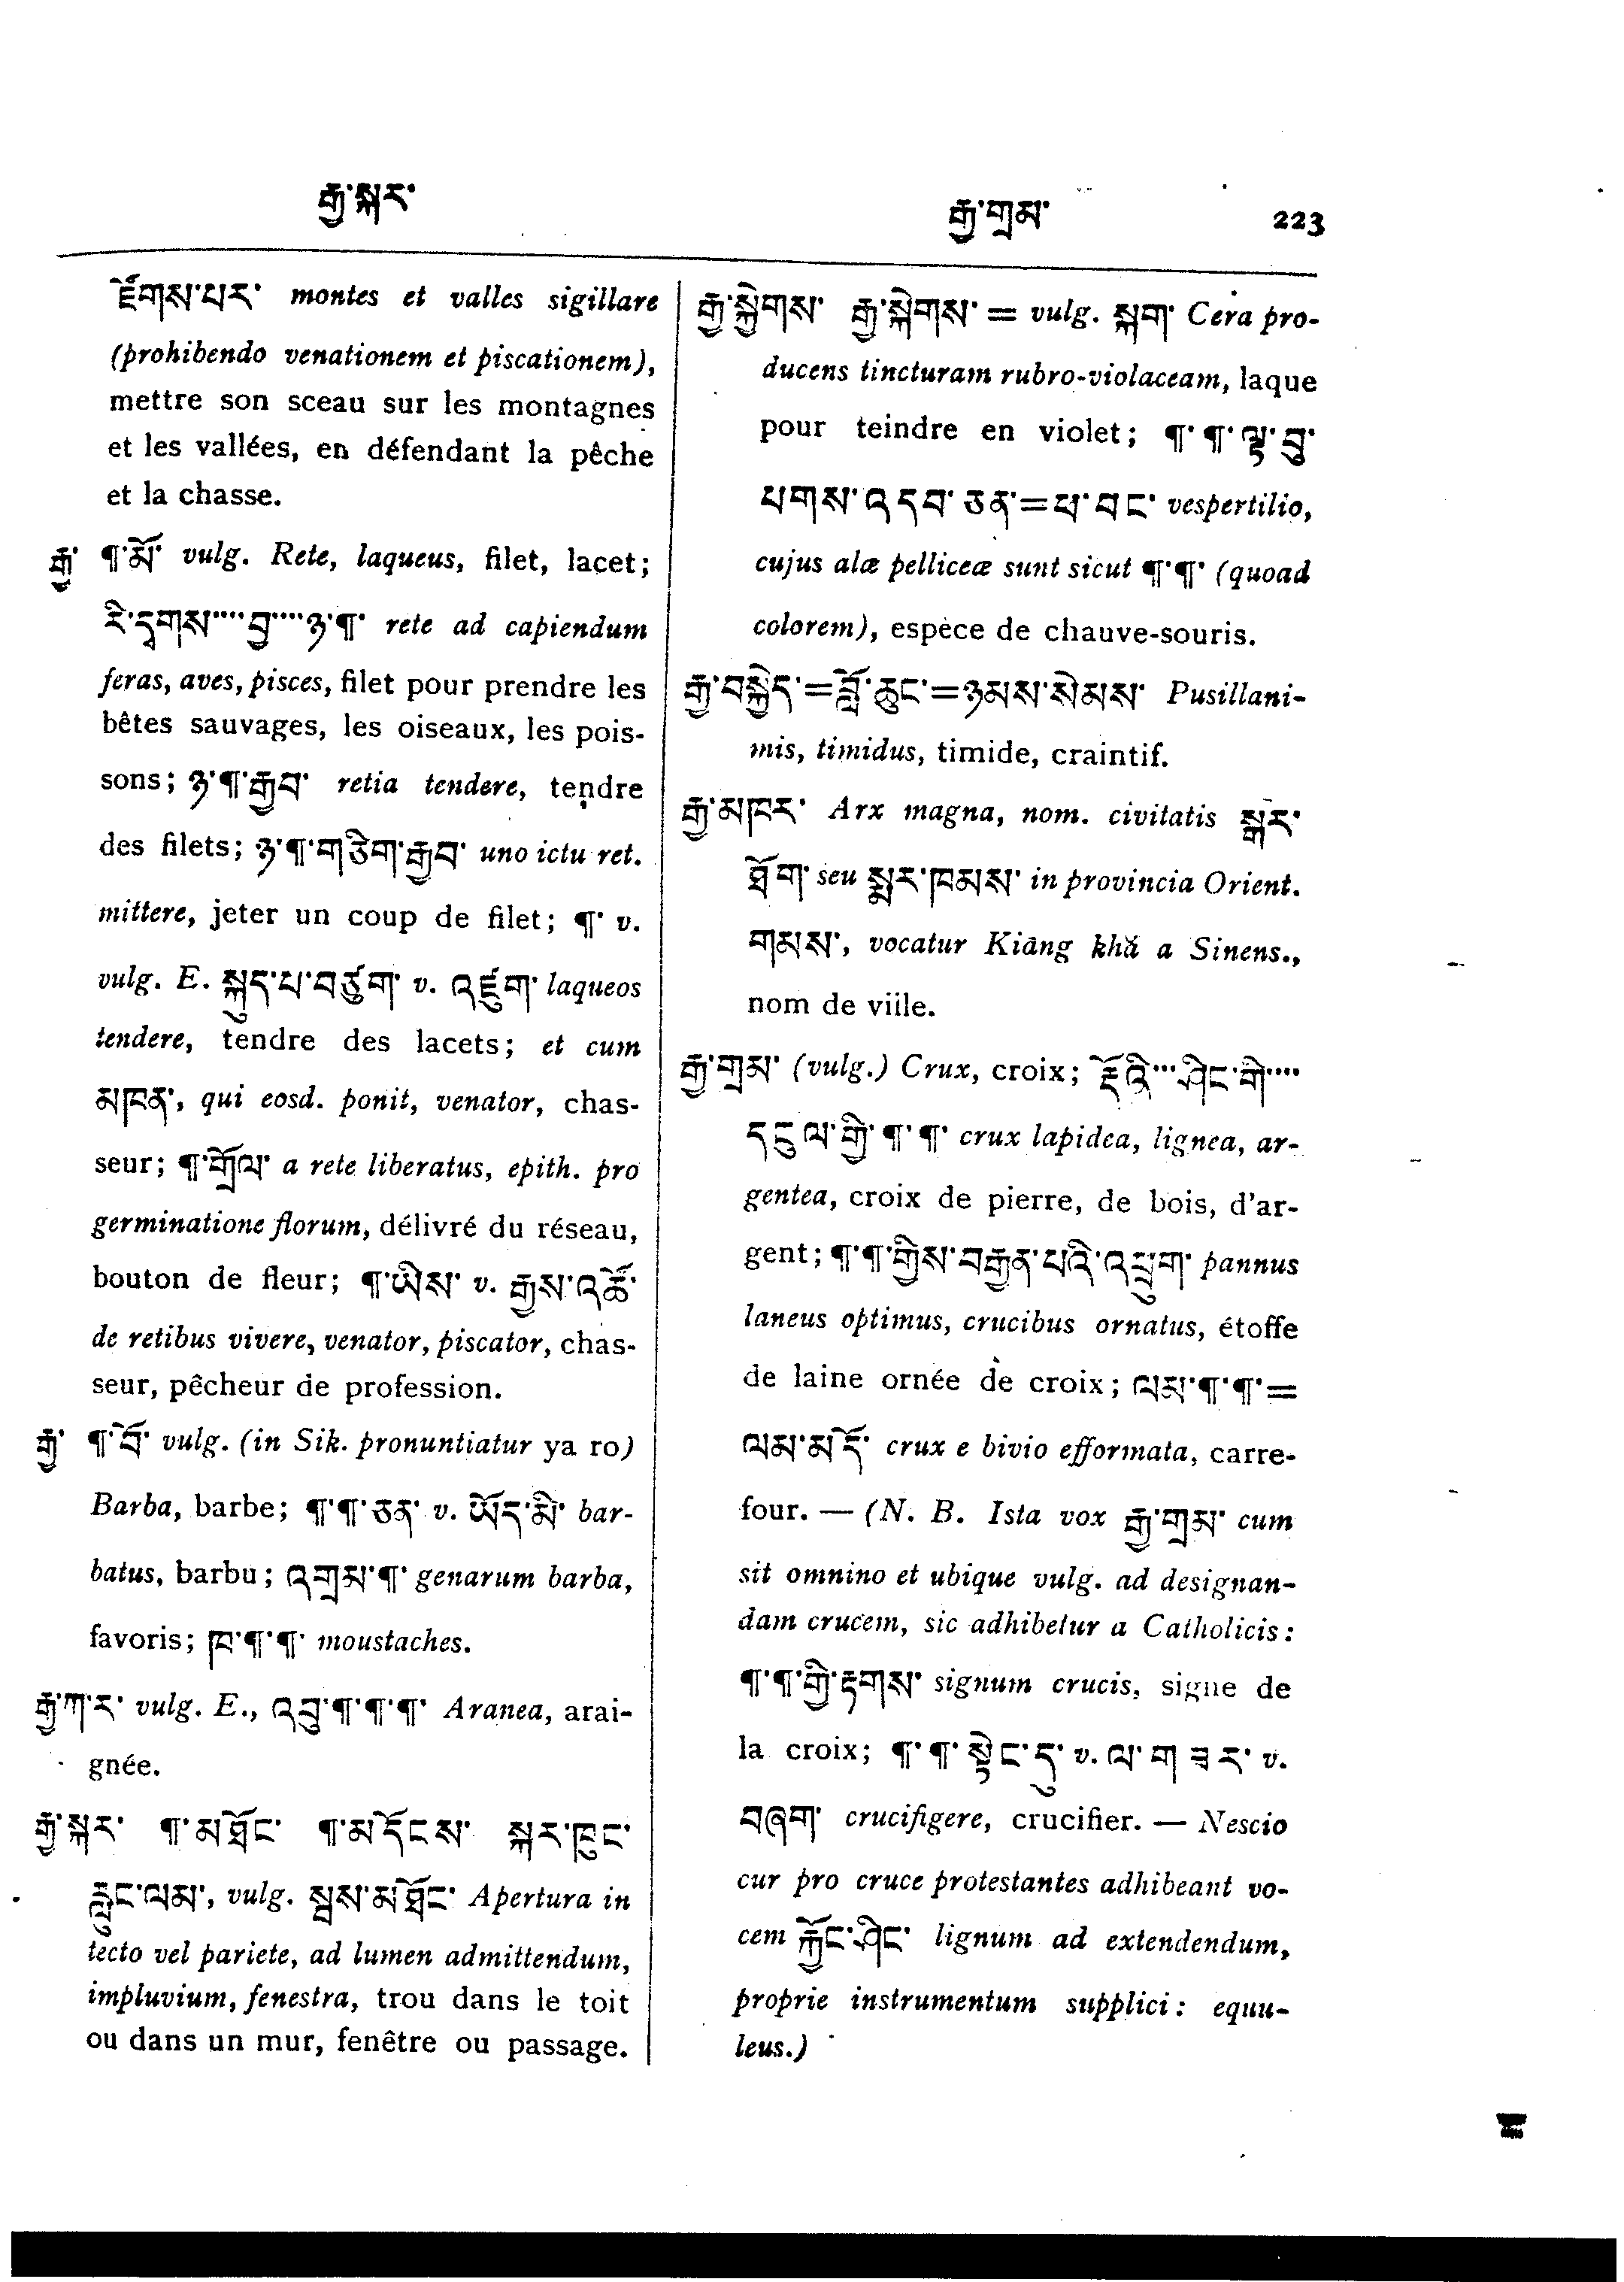 རྒྱ་སྐར་
རྒྱ་གྲམ་ 223
རྫོགས་པར་ montes et valles sigillare
(prohibendo venationem et piscationem),
mettre son sceau sur les montagnes
et les vallées, en défendant la pêche
et la chasse.
རྒྱ་ ¶་མོ་ vulg. Rete, laqueus, filet, lacet;
རི་དྭགས་་་་བྱ་་་་ཉ་¶་ rete ad capiendum
feras, aves, pisces, filet pour prendre les
bêtes sauvages, les oiseaux, les pois-
sons; ཉ་¶་རྒྱབ་ retia tendere, tendre
des filets; ཉ་¶་གཅིག་རྒྱབ་ uno ictu ret.
mittere, jeter un coup de filet; ¶་ v.
vulg. E. སྐུད་པ་བཙུག་ v. འཛུག་ laqueos
tendere, tendre des lacets; et cum
མཁན་, qui eosd. ponit, venator, chas-
seur; ¶་གྲོལ་ a rete liberatus, epith. pro
germinatione florum, délivré du réseau,
bouton de fleur; ¶་ཡིས་ v. རྒྱས་འཚོ་
de retibus vivere, venator, piscator, chas-
seur, pêcheur de profession.
རྒྱ་ ¶་བོ་ vulg. (in Sik. pronuntiatur ya ro)
Barba, barbe; ¶་¶་ཅན་ v. ཡོད་མི་ bar-
batus, barbu; འགྲམ་¶་ genarum barba,
favoris; ཁ་¶་¶་ moustaches.
རྒྱ་ཀ་ར་ vulg. E., འབུ་¶་¶་¶་ Aranea, arai-
gnée.
རྒྱ་སྐར་ ¶་མཐོང་ ¶་མདོངས་ སྐར་ཁུང་
རླུང་ལམ་, vulg. སྦས་མཐོང་ Apertura in
tecto vel pariete, ad lumen admittendum,
impluvium, fenestra, trou dans le toit
ou dans un mur, fenêtre ou passage.
རྒྱ་སྐྱེགས་ རྒྱ་སྐེགས་ = vulg. སྐག་ Cera pro-
ducens tincturam rubro-violaceam, laque
pour teindre en violet; ¶་¶་ལྟ་བུ་
པགས་འདབ་ཅན་=ཕ་བང་ vespertilio,
cujus alæ pelliceæ sunt sicut ¶་¶་ (quoad
colorem), espèce de chauve-souris.
རྒྱ་བསྐྱེད་=བློ་ཆུང་=ཉམས་སེམས་ Pusillani-
mis, timidus, timide, craintif.
རྒྱ་མཁར་ Arx magna, nom. civitatis སྒར་
ཐོག་ seu སྨར་ཁམས་ in provincia Orient.
གམས་, vocatur Kiāng khǎ a Sinens.,
nom de viile.
རྒྱ་གྲམ་ (vulg.) Crux, croix; རྡོའི་་་ཤིང་གི་་་་
དངུལ་གྱི་¶་¶་ crux lapidea, lignea, ar-
gentea, croix de pierre, de bois, d'ar-
gent; ¶་¶་གྱིས་བརྒྱན་པའི་འཕྲུག་ pannus
laneus optimus, crucibus ornatus, étoffe
de laine ornée de croix; ལམ་¶་¶་=
ལམ་མདོ་ crux e bivio efformata, carre-
four. — (N. B. Ista vox རྒྱ་གྲམ་ cum
sit omnino et ubique vulg. ad designan-
dam crucem, sic adhibetur a Catholicis:
¶་¶་གྱི་རྟགས་ signum crucis, signe de
la croix; ¶་¶་སྟེང་དུ་ v. ལ་གཟར་ v.
བཞག་ crucifigere, crucifier. — Nescio
cur pro cruce protestantes adhibeant vo-
cem རྐྱོང་ཤིང་ lignum ad extendendum,
proprie instrumentum supplici: equu-
leus.)